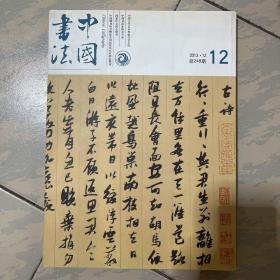 中國書法
2013·12
总248期
12
古詩
行〻重行〻與君生別離相
去万餘里各在天一涯道路
阻且長會面安可知胡馬依
北風越鳥巢南枝相去日
已遠衣帶日以緩浮雲蔽
白日游子不顧返思君令
人老歲月忽已晚棄捐勿
復道努力加餐飯